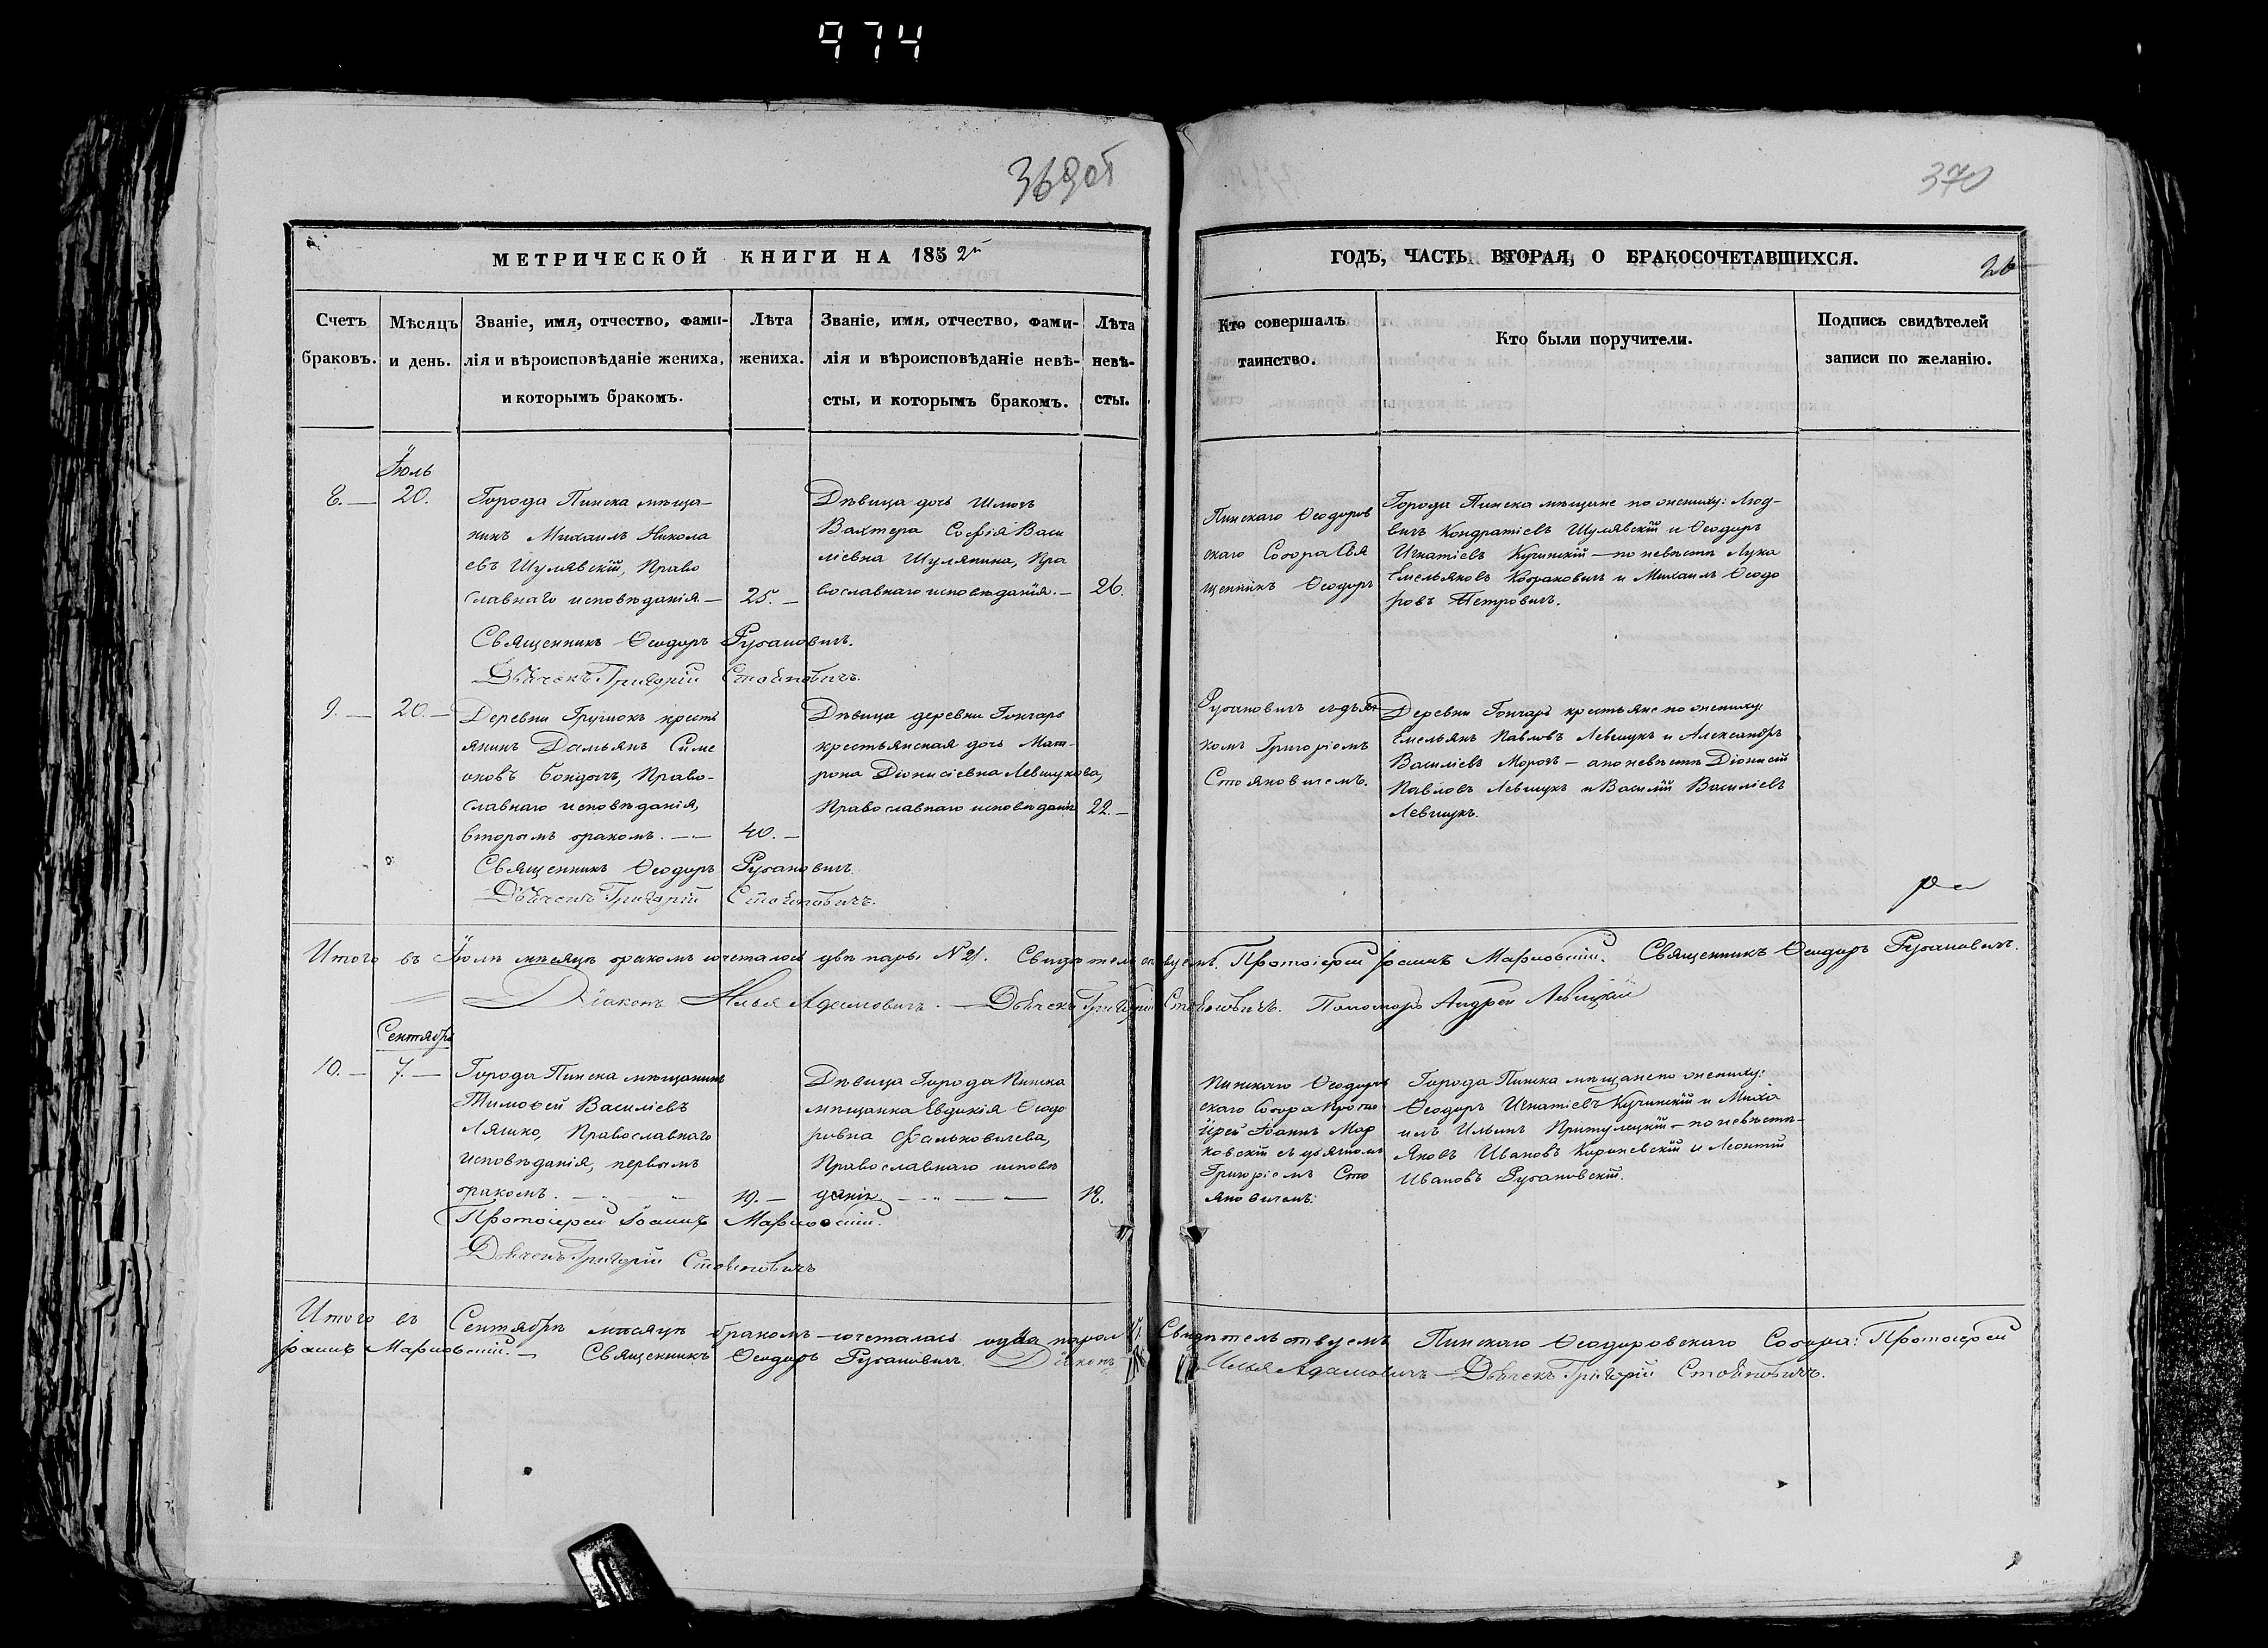 974
369об
370
МЕТРИЧЕСКОЙ КНИГИ НА 1852й
ГОДЪ, ЧАСТЬ ВТОРАЯ, О БРАКОСОЧЕТАВШИХСЯ.
26
Счетъ
браковъ.
Мѣсяцъ
и день.
Званіе, имя, отчество, фами-
лія и вѣроисповѣданіе жениха,
и которымъ бракомъ.
Лѣта
жениха.
Званіе, имя, отчество, фами-
лія и вѣроисповѣданіе невѣ-
сты, и которымъ бракомъ.
Лѣта
невѣ-
сты.
Кто совершалъ
таинство.
Кто были поручители.
Подпись свидѣтелей
записи по желанію.
Іюль
8.— 20.
Города Пинска мѣща-
нинъ Михаилъ Никола
евъ Шулявскій, Право
славнаго исповѣданія.—
25.—
Дѣвица дочь
Вахтера Софія Васи
ліевна Шулякина, Пра
вославнаго исповѣданія.—
26.
Пинскаго Ѳеодоров
скаго Собора Свя
щенникъ Ѳеодоръ
Города Пинска мѣщане по жениху: Люд-
вигъ Кондратіевъ Шулявскій и Ѳеодоръ
Игнатіевъ Кучинскій — по невѣстѣ Лука
Емельяновъ и Михаилъ Ѳеодо
ровъ Петровичъ.
Священникъ Ѳеодоръ Русановичъ.
Дьячекъ Григорій Стояновичъ.
9.— 20.—
Деревни кресть
янинъ Дамьянъ Симе
оновъ Бондичъ, Право-
славнаго исповѣданія,
вторымъ бракомъ.——
40.—
Дѣвица деревни Гончаръ
крестьянская дочь Мат-
рона Діонисіевна Левшукова,
Православнаго исповѣданія
22.—
Русановичъ съ дьяч
комъ Григоріемъ
Стояновичемъ.
Деревни Гончаръ крестьяне по жениху
Емельянъ Павловъ Левшукъ и Александръ
Василіевъ Морозъ — а по невѣстѣ Діонисій
Павловъ Левшукъ и Василій Василіевъ
Левшукъ.
Священникъ Ѳеодоръ Русановичъ
Дьячекъ Григорій Стояновичъ.
Итого въ Іюлѣ мѣсяцѣ бракомъ сочеталось двѣ пары N 2. Свидѣтельствуемъ. Протоіерей Іоаннъ Марковскій. Священникъ Ѳеодоръ Русановичъ.
Діаконъ Илья Адамовичъ.— Дьячекъ Григорій Стояновичъ. Пономарь Андрей Левицкій
Сентябрь
10.— 7.—
Города Пинска мѣщанинъ
Тимоѳей Василіевъ
Ляшко, Православнаго
исповѣданія, первымъ
бракомъ.
19.—
Дѣвица Города Пинска
мѣщанка Евдокія Ѳеодо
ровна Фальковичева,
Православнаго исповѣ
данія
18.
Пинскаго Ѳеодоров
скаго Собора Прото
іерей Іоаннъ Мар
ковскій съ дьячкомъ
Григоріемъ Сто
яновичемъ.
Города Пинска мѣщане по жениху:
Ѳеодоръ Игнатіевъ Кучинскій и Миха
илъ Ильинъ Притулецкій — по невѣстѣ—
Яковъ Ивановъ Кориневскій и Леонтій
Ивановъ Русановскій.
Протоіерей Іоаннъ Марковскій.
Дьячекъ Григорій Стояновичъ
Итого въ Сентябрѣ мѣсяцѣ бракомъ сочеталась одна пара N 1. Свидѣтельствуемъ Пинскаго Ѳеодоровскаго Собора: Протоіерей
Іоаннъ Марковскій.— Священникъ Ѳеодоръ Русановичъ. Діаконъ Илья Адамовичъ — Дьячекъ Григорій Стояновичъ.